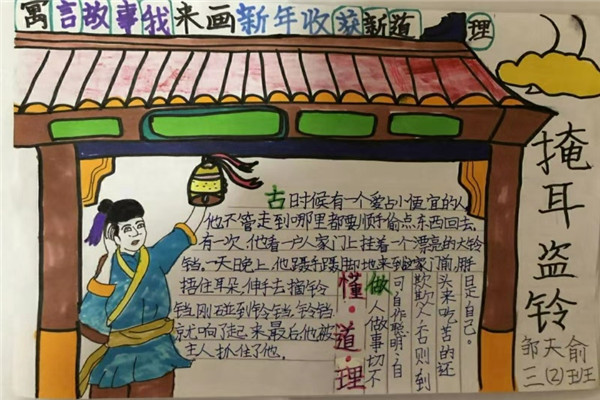 寓言故事我来画新年收获新道理
古时候有一个爱占小便宜的人
他不管走到哪里都要顺手偷点东西回去。
有一次,他看一户人家门上挂着一个漂亮的大铃
铛。一天晚上,他蹑手蹑脚地来到这家门前,
捂住耳朵,伸手去摘铃
铛,刚碰到铃铛,铃铛
就响了起来最后他被
主人抓住了他。
懂·道·理
做人做事切不
可自作聪明,自
欺欺人,否则到
头来吃苦的还
是自己。
掩耳盗铃
三(2)班